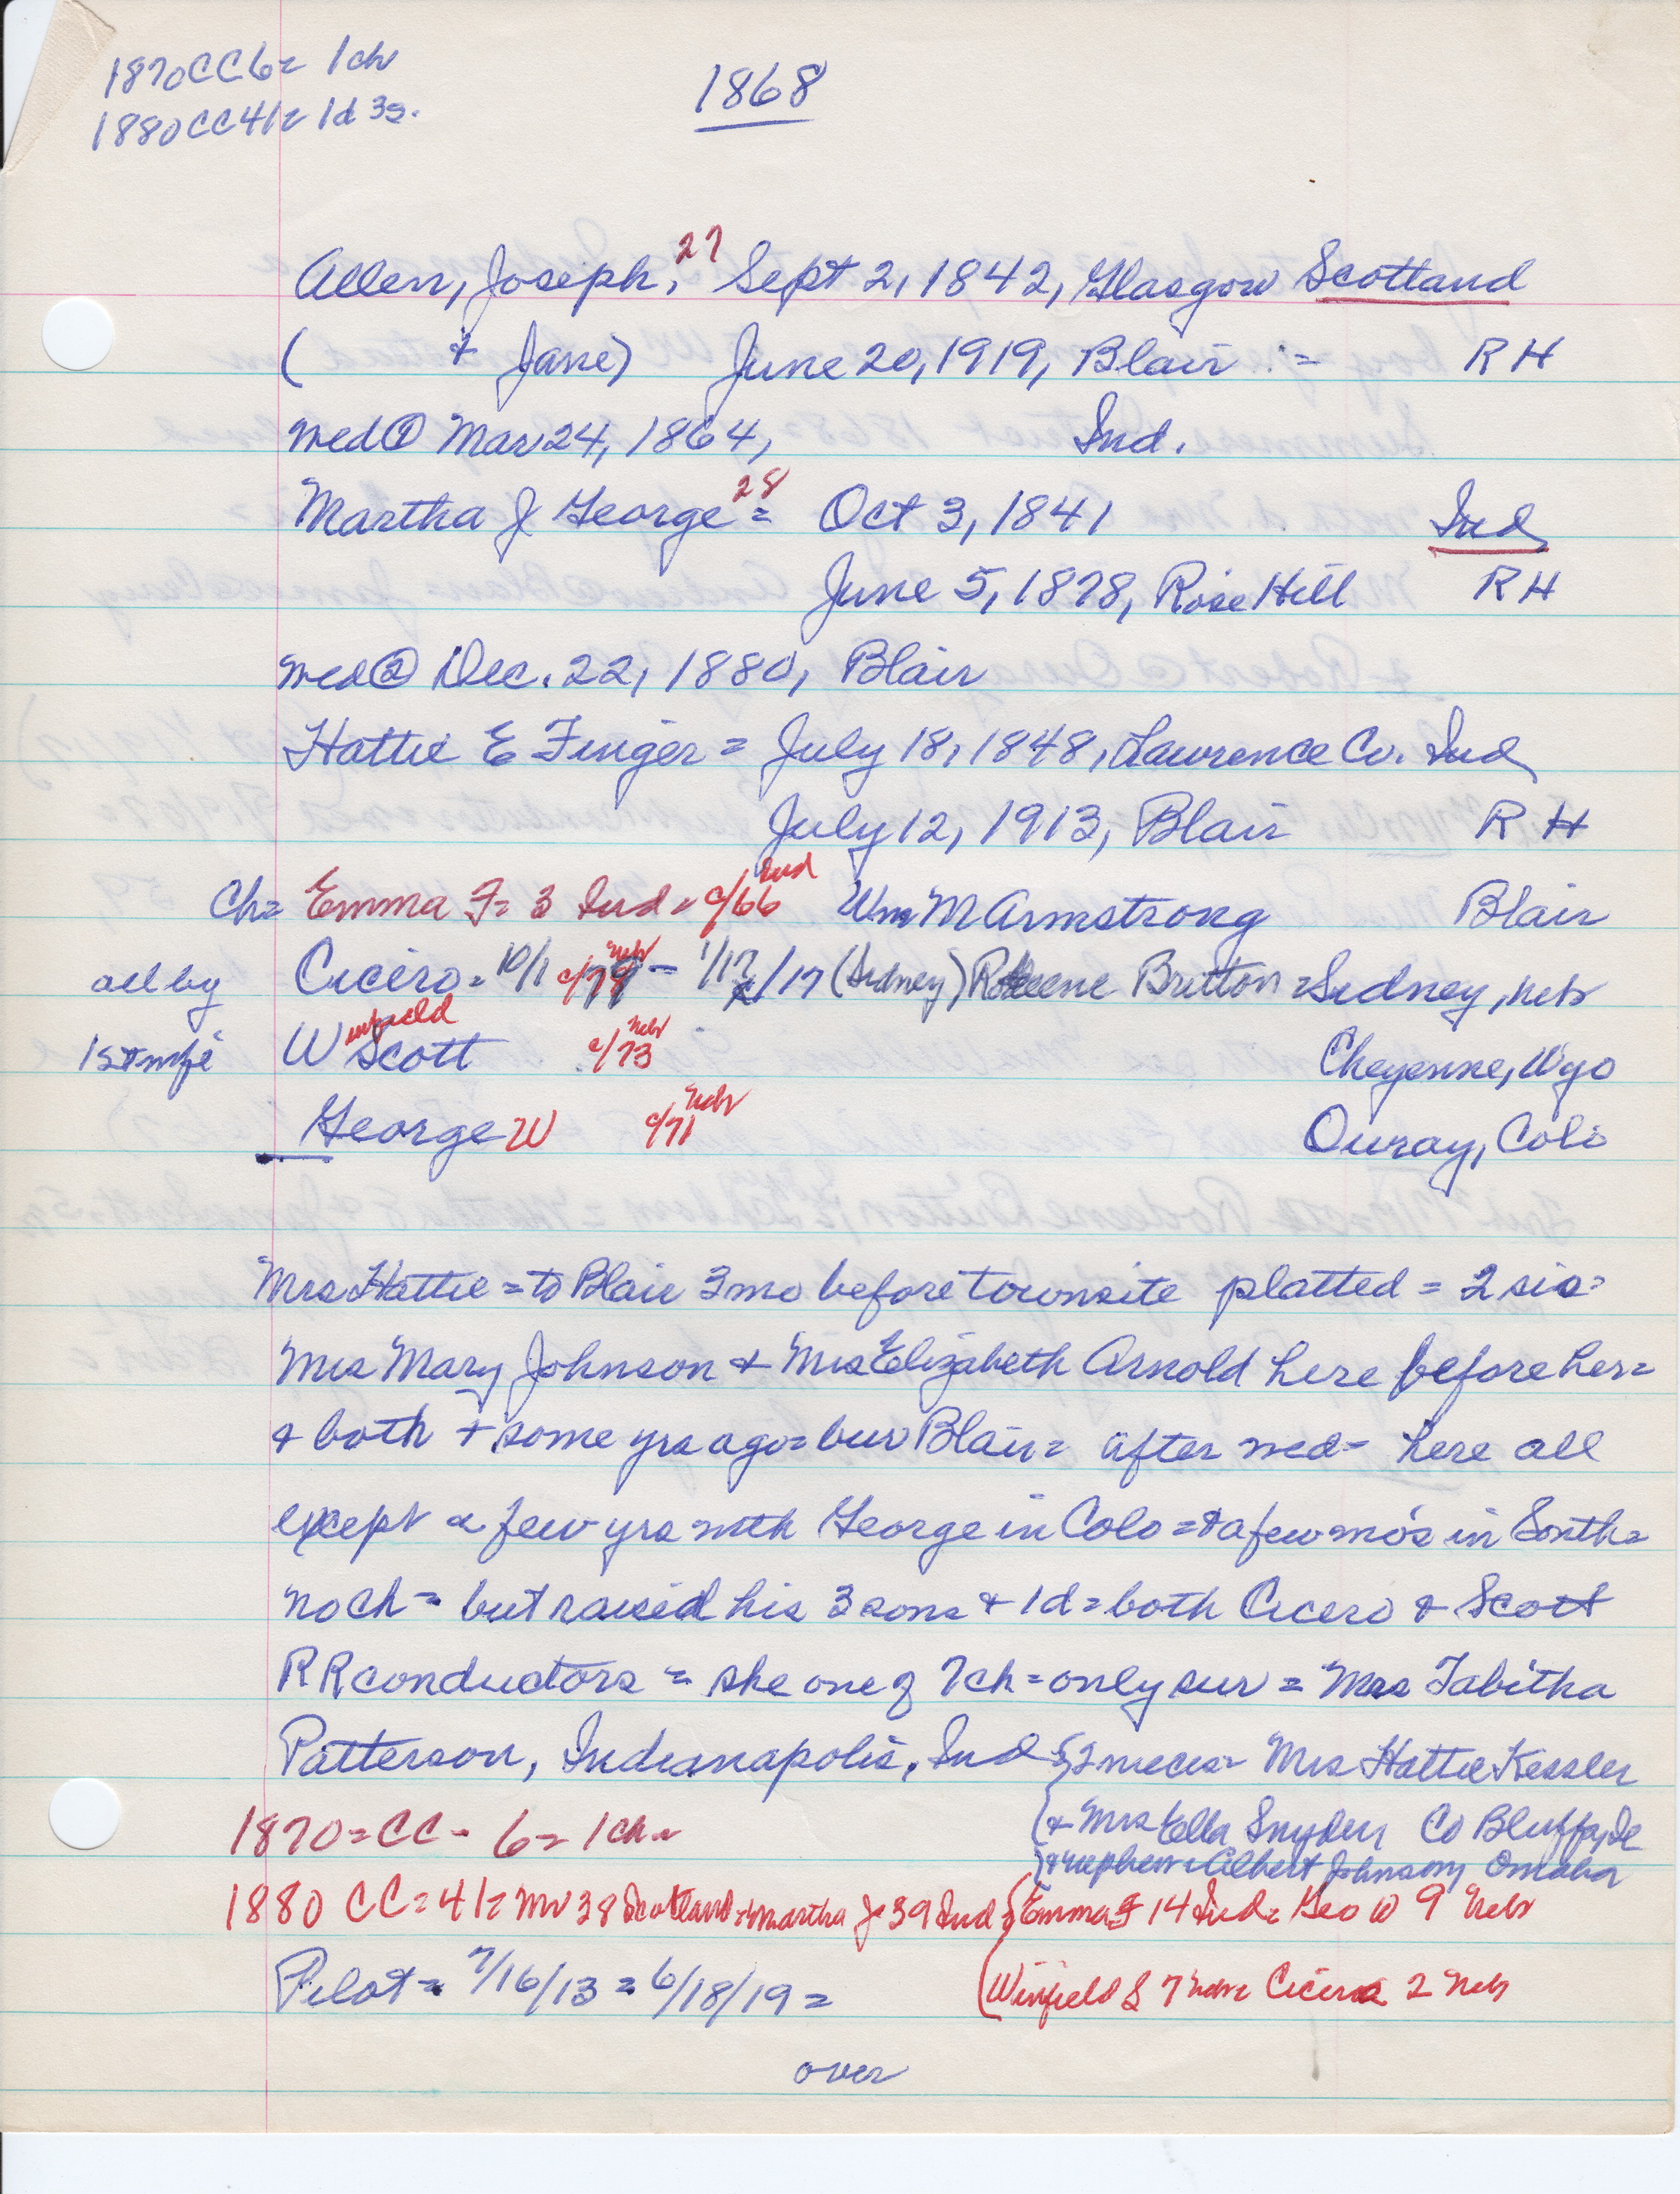 1870CC6= 1ch
1880CC41= 1d 3s.
1868
Allen, Joseph, 27 Sept 2, 1842, Glasgow Scotland
( & Jane) June 20, 1919, Blair = RH
wed① Mar 24, 1864, Ind.
Martha J George 28 = Oct 3, 1841 Ind
June 5, 1878, Rose Hill RH
wed② Dec. 22, 1880, Blair
Hattie E Finger = July 18, 1848, Lawrence Co. Ind
July 12, 1913, Blair RH
Ch= Emma F= 3 Ind = c/66 Ind Wm M Armstrong Blair
all by Cicero = 10/1 Neb - 1/17 /17 (Sidney) Britton = Sidney, Neb
1st wife Winfield Scott c/73 Neb Cheyenne, Wyo
George W c/71 Neb Ouray, Colo
Mrs Hattie = to Blair 3 mo before townsite platted = 2 sis=
Mrs Mary Johnson & Mrs Elizabeth Arnold here before her=
& both + some yrs ago = bur Blair = after wed- here all
except a few yrs with George in Colo = & a few mo's in South=
no ch = but raised his 3 sons & 1d = both Cicero & Scott
RR conductors = she one of 7ch = only sur = Mrs Tabitha
Patterson, Indianapolis, Ind {2 nieces= Mrs Hattie Kessler
& Mrs Ella Snyder Co Bluffs, Ia
& nephew = Albert Johnson, Omaha
1870=CC- 6= 1ch=
1880 CC=41= Mr 38 Scotland = Martha J 39 Ind { Emma F 14 Ind= Geo W 9 Neb
(Winfield S 7 Cicero 2 Neb
Pilot = 7/16/13 = 6/18/19 =
over